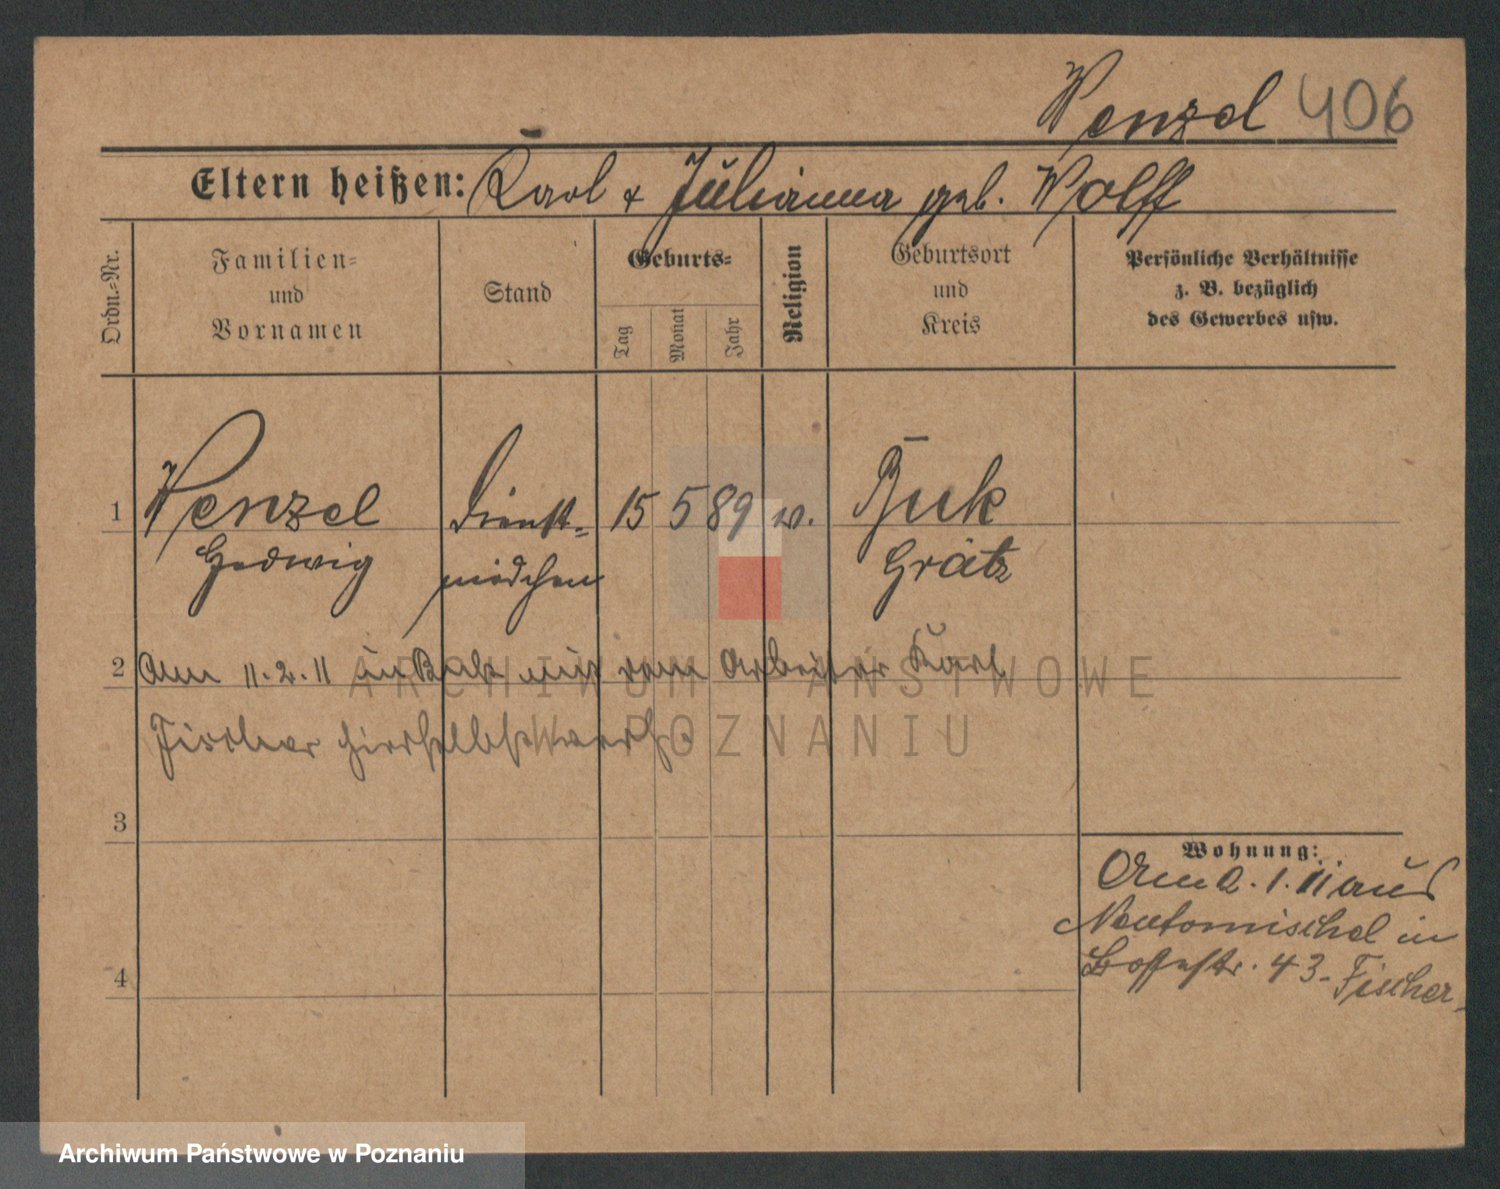 Wenzel 406
Eltern heißen: Karl & Julianna geb. Wolff
Ordn.-Nr.
Familien-
und
Vornamen
Stand
Geburts-
Tag
Monat
Jahr
Religion
Geburtsort
und
Kreis
Persönliche Verhältnisse
z. B. bezüglich
des Gewerbes usw.
1 Wenzel Dienst- 15 5 89 Buk
Hedwig mädchen Grätz
2 Am 11.2.11 in Buk mit Arbeiter Karl
Fischer hierselbst
3
Wohnung:
Am 2.1.11 aus
Neutomischel in
43 Fischer
4
ARCHIWUM PAŃSTWOWE
W POZNANIU
Archiwum Państwowe w Poznaniu